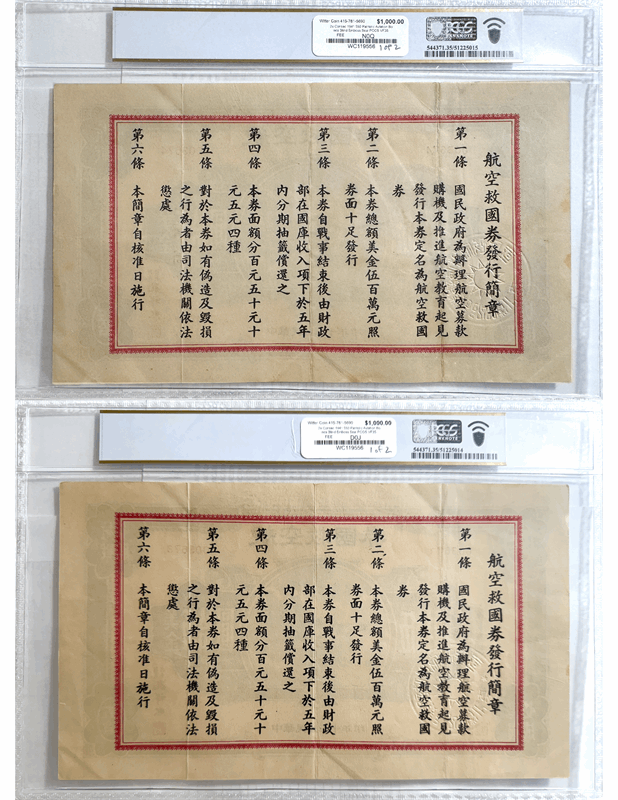 Witter Coin 415-781-5690
$1,000.00
FEE
NOQ
WC119556
1 of 2
PCGS
BANKNOTE
544371.35/51225015
航空救國券發行簡章
第一條 國民政府為辦理航空募款
購機及推進航空教育起見
發行本券定名為航空救國
券
第二條 本券總額美金伍百萬元照
券面十足發行
第三條 本券自戰事結束後由財政
部在國庫收入項下於五年
內分期抽籤償還之
第四條 本券面額分百元五十元十
元五元四種
第五條 對於本券如有偽造及毀損
之行為者由司法機關依法
懲處
第六條 本簡章自核准日施行
Witter Coin 415-781-5690
$1,000.00
FEE
DOJ
WC119556
1 of 2
PCGS
BANKNOTE
544371.35/51225014
航空救國券發行簡章
第一條 國民政府為辦理航空募款
購機及推進航空教育起見
發行本券定名為航空救國
券
第二條 本券總額美金伍百萬元照
券面十足發行
第三條 本券自戰事結束後由財政
部在國庫收入項下於五年
內分期抽籤償還之
第四條 本券面額分百元五十元十
元五元四種
第五條 對於本券如有偽造及毀損
之行為者由司法機關依法
懲處
第六條 本簡章自核准日施行